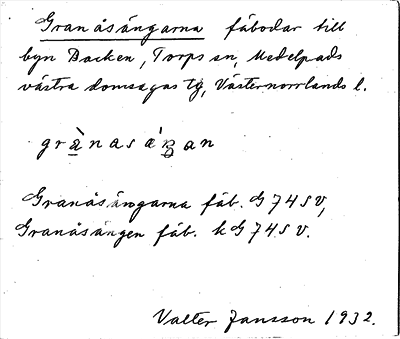 Granåsängarna fäbodar till
byn Backen, Torps sn, Medelpads
västra domsagas tg, Västernorrlands l.
grànasáŋan
Granåsängarna fäb. G 74 S V,
Granåsängen fäb. k G 74 S V.
Valter Jansson 1932.